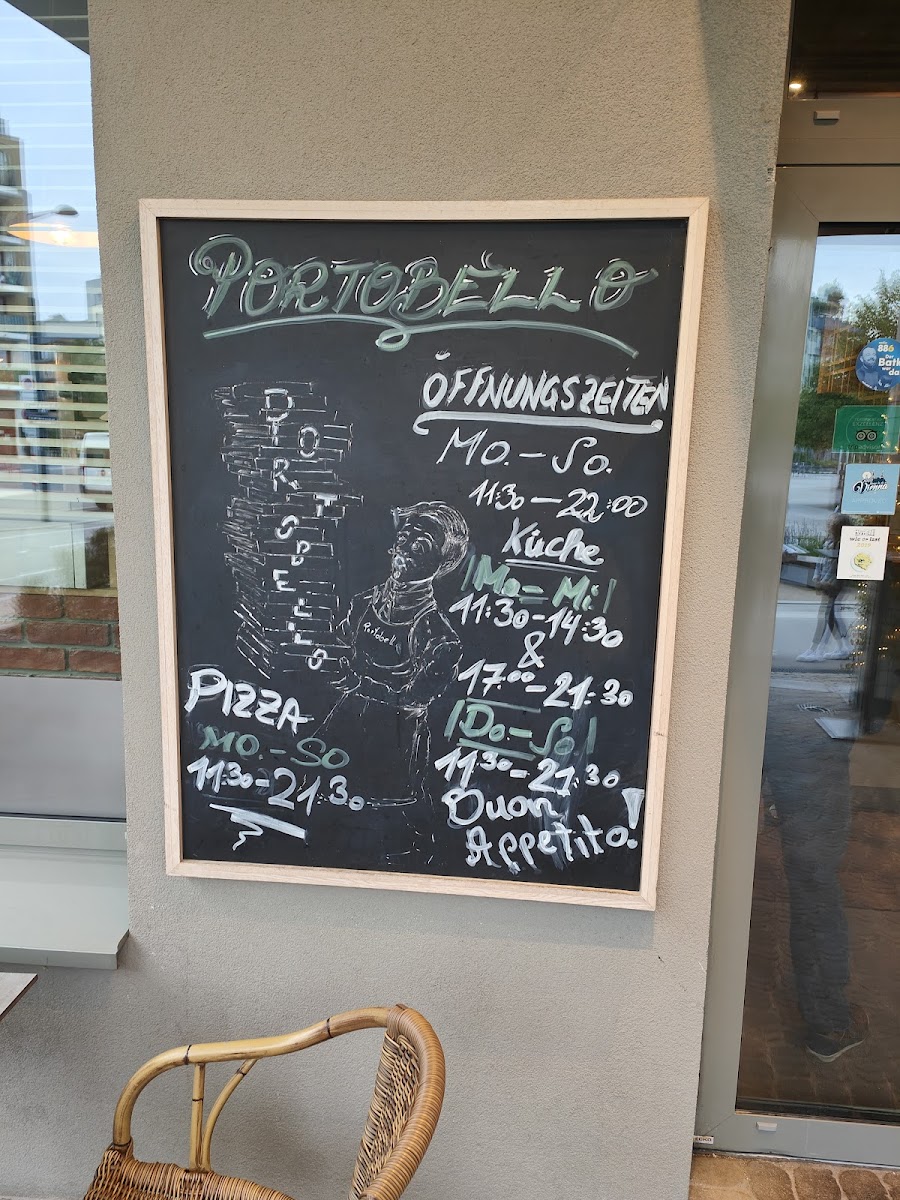 PORTOBELLO
ÖFFNUNGSZEITEN
Mo. - So.
11:30 - 22:00
Küche
Mo. - Mi
11:30 - 14:30
&
17.00 - 21:30
Do. - So.
11 30 - 21:30
Buon
Appetito!
PORTOBELLO
Portobello
PIZZA
MO. - SO
11:30 - 21:30
886
Vienna